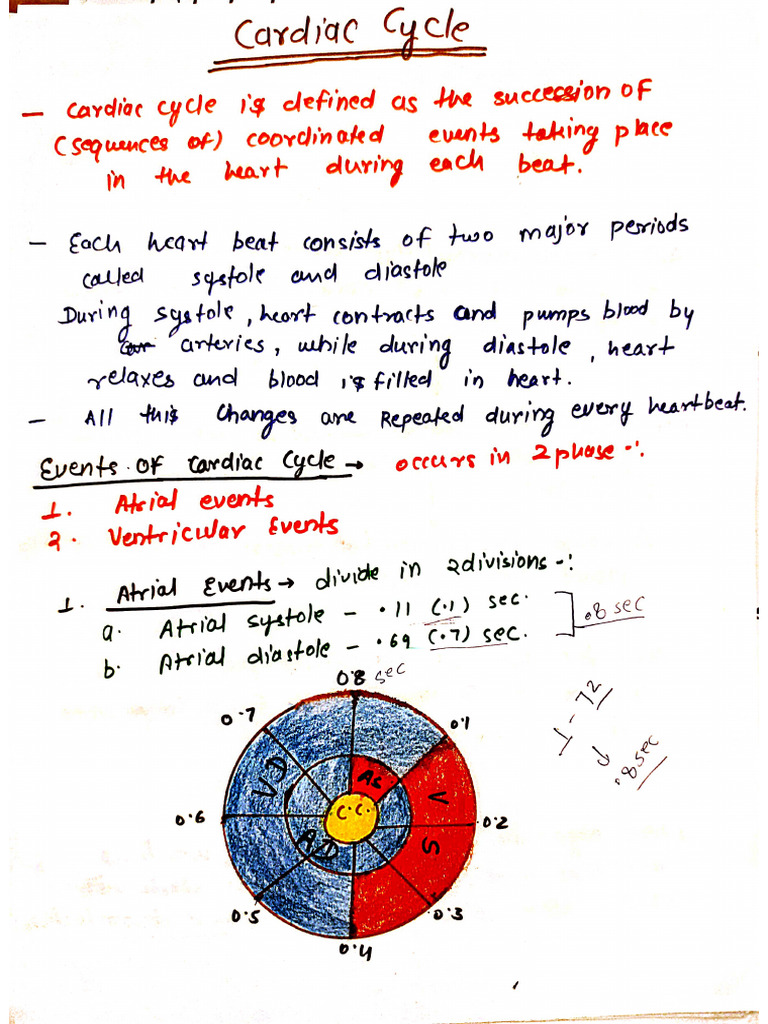 Cardiac Cycle
- Cardiac cycle is defined as the succession of
(sequences of) coordinated events taking place
in the heart during each beat.
- Each heart beat consists of two major periods
called systole and diastole
During systole, heart contracts and pumps blood by
arteries, while during diastole, heart
relaxes and blood is filled in heart.
- All this changes are Repeated during every heartbeat.
Events of Cardiac Cycle → occurs in 2 phase -:
1. Atrial events
2. Ventricular Events
1. Atrial Events → divide in 2 divisions -:
a. Atrial systole - .11 (.1) sec.
b. Atrial diastole - .69 (.7) sec.
.8 sec
0.8 sec
0.7
0.1
1 - 72
↓
.8 sec
VD
AS
V
0.6
C.C.
0.2
AD
S
0.5
0.3
0.4